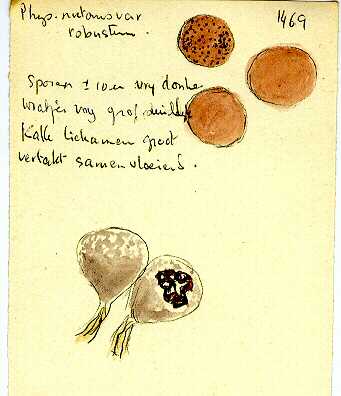 Phys. nutans var
robustum.
1469
Sporen ± 10 u vry donker
wratjes vry grof duidelyk
Kalk lichamen groot
vertakt samenvloeiend.